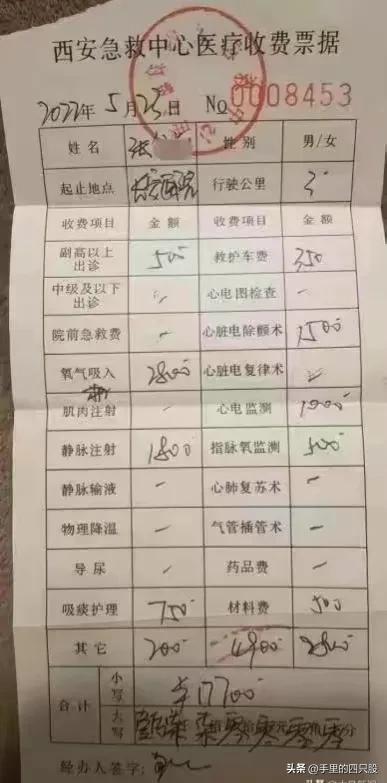 西安急救中心医疗收费票据
2022年5月23日 No 0008453
姓名 张 性别 男/女
起止地点 行驶公里 3
收费项目 金额 收费项目 金额
副高以上出诊 500 救护车费 350
中级及以下出诊 - 心电图检查 -
院前急救费 - 心脏电除颤术 1500
氧气吸入 2800 心脏电复律术
肌肉注射 - 心电监测 1000
静脉注射 1800 指脉氧监测 500
静脉输液 - 心肺复苏术 -
物理降温 - 气管插管术 -
导尿 - 药品费 -
吸痰护理 750 材料费 500
其它 200 4900 2800
合计 小写 ¥17700
大写 柒 零 零 零 分
经办人签字:
头条 @手里的四只股